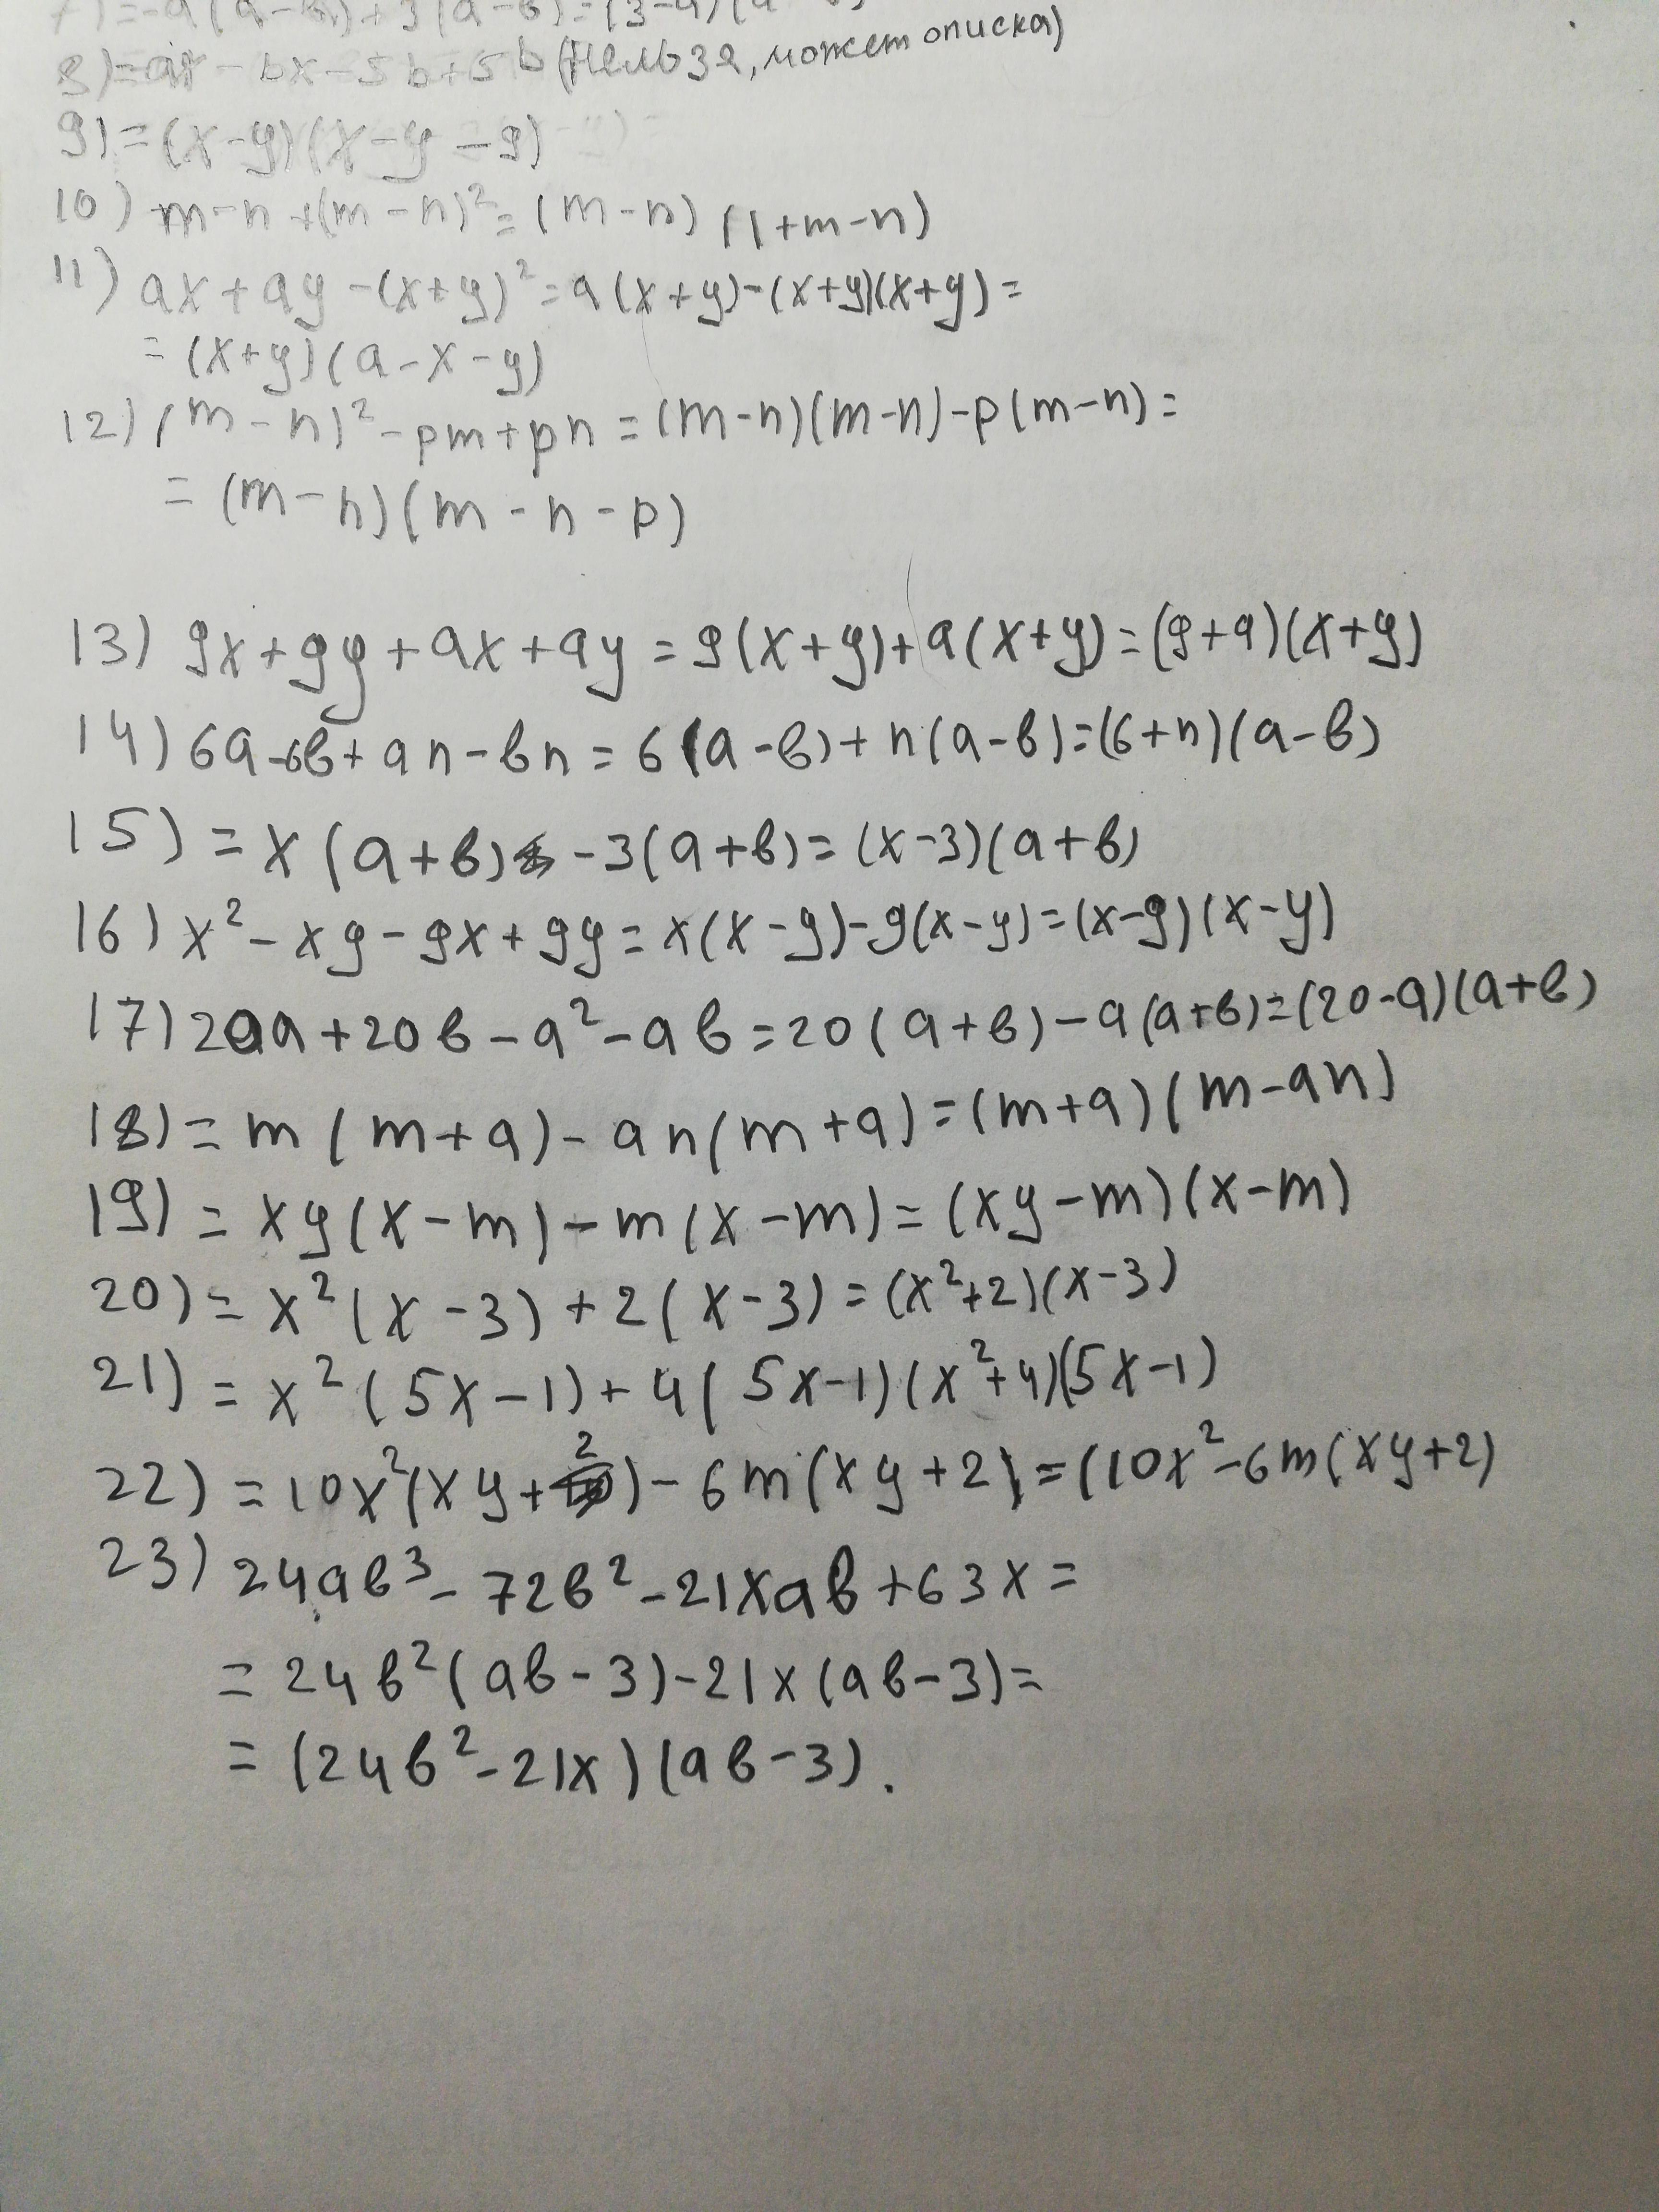 7) = -a(a-b)+3(a-b)=(3-a)(a
8)=ax-bx-5b+5b (нельзя, может описка)
9)=(x-y)(x-y-9)
10) m-n+(m-n)²=(m-n)(1+m-n)
11) ax+ay-(x+y)²=a(x+y)-(x+y)(x+y)=
=(x+y)(a-x-y)
12) (m-n)²-pm+pn=(m-n)(m-n)-p(m-n)=
=(m-n)(m-n-p)
13) 9x+9y+ax+ay=9(x+y)+a(x+y)=(9+a)(x+y)
14) 6a-6в+an-вn=6(a-в)+n(a-в)=(6+n)(a-в)
15) =x(a+в)-3(a+в)=(x-3)(a+в)
16) x²-xy-9x+9y=x(x-y)-9(x-y)=(x-9)(x-y)
17) 20a+20в-a²-aв=20(a+в)-a(a+в)=(20-a)(a+в)
18) =m(m+a)-an(m+a)=(m+a)(m-an)
19) =xy(x-m)-m(x-m)=(xy-m)(x-m)
20) =x²(x-3)+2(x-3)=(x²+2)(x-3)
21) =x²(5x-1)+4(5x-1)(x²+4)(5x-1)
22) =10x²(xy+2)-6m(xy+2)=(10x²-6m(xy+2)
23) 24aв³-72в²-21xaв+63x=
=24в²(aв-3)-21x(aв-3)=
=(24в²-21x)(aв-3).